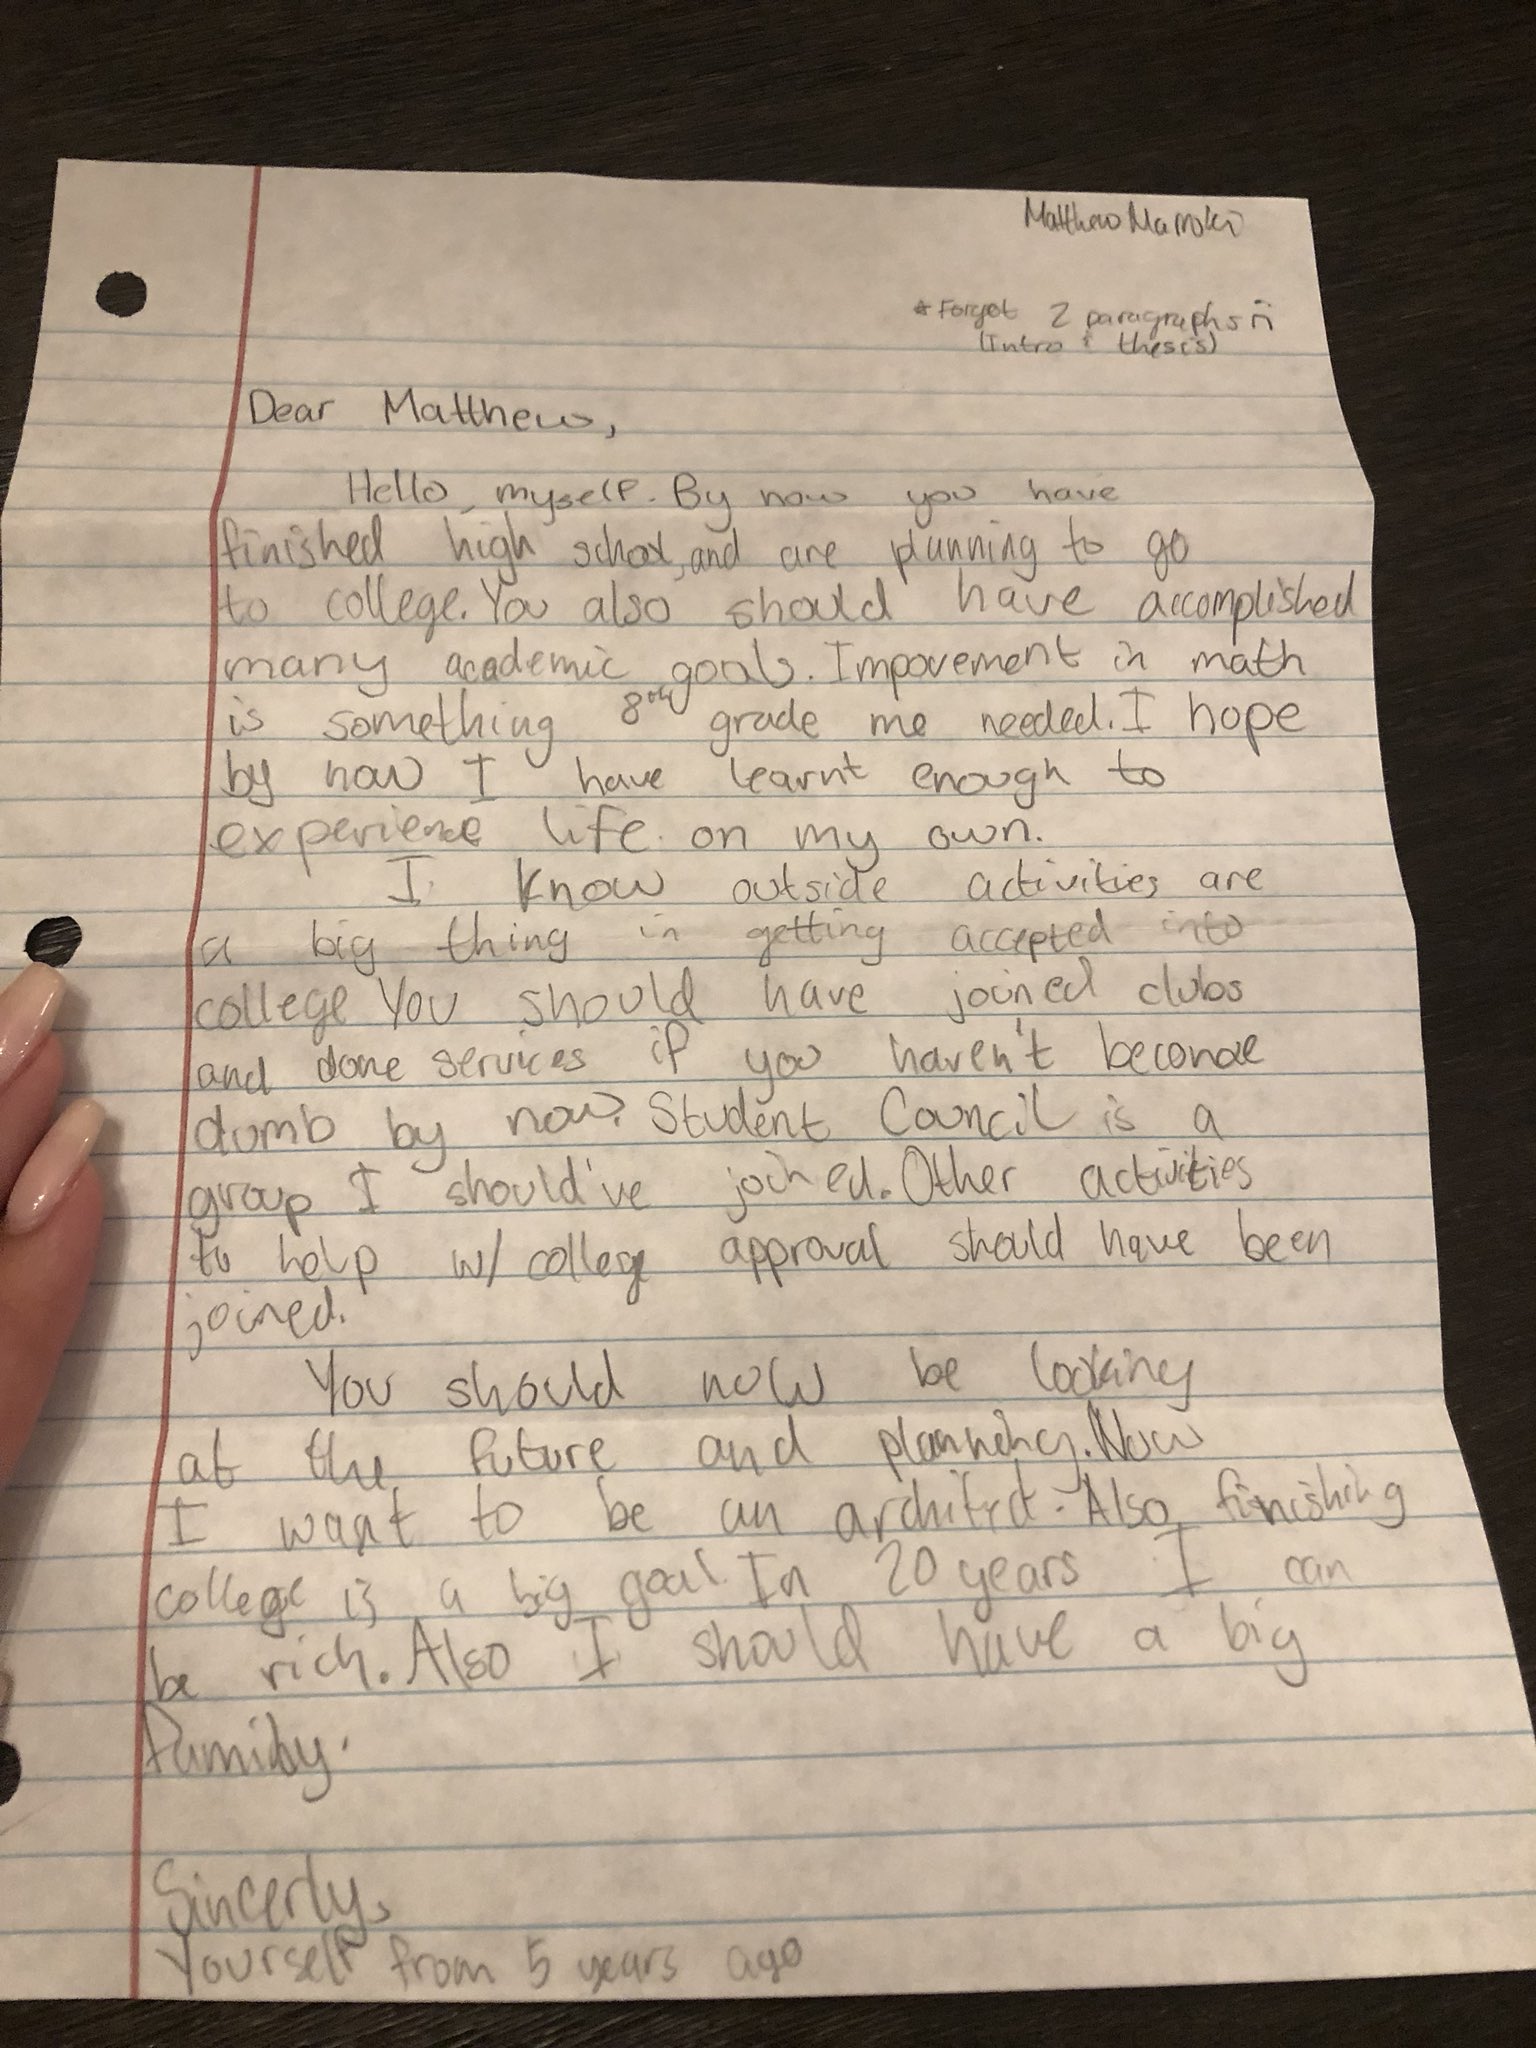 Matthew Marroki
* Forgot 2 paragraphs n̈
(Intro & thesis)
Dear Matthew,
Hello, myself. By now you have
finished high school, and are planning to go
to college. You also should have accomplished
many academic goals. Impovement in math
is something 8th grade me needed. I hope
by now I have learnt enough to
experience life on my own.
I know outside activities are
a big thing in getting accepted into
college You should have joined clubs
and done services if you haven't become
dumb by now. Student Council is a
group I should've joined. Other activities
to help w/ college approval should have been
joined.
You should now be looking
at the future and planning. Now
I want to be an architect. Also, finishing
college is a big goal. In 20 years I can
be rich. Also I should have a big
family.
Sincerly,
Yourself from 5 years ago